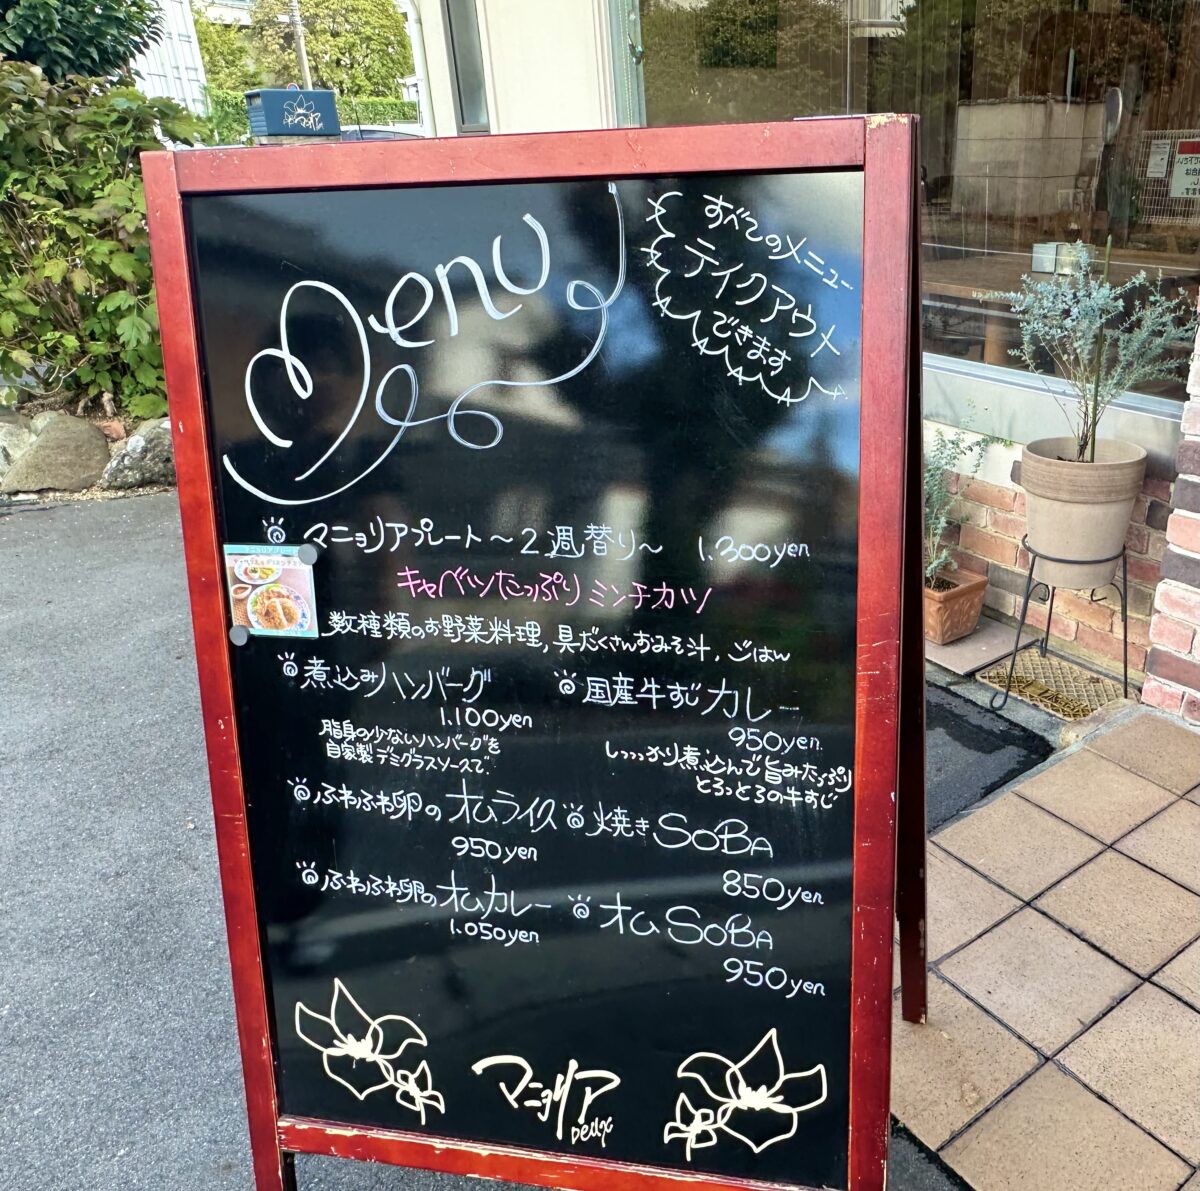 Menu
すべてのメニュー
テイクアウト
できます
マニョリアプレート～2週替り～ 1.300yen
キャベツたっぷりミンチカツ
数種類のお野菜料理,具だくさんおみそ汁,ごはん
煮込みハンバーグ
1.100yen
脂身の少ないハンバーグを
自家製デミグラスソースで
国産牛すじカレー
950yen
しっっっかり煮込んで旨みたっぷり
とろっとろの牛すじ
ふわふわ卵のオムライス
950yen
焼きSOBA
850yen
ふわふわ卵のオムカレー
1.050yen
オムSOBA
950yen
マニョリア
Deux